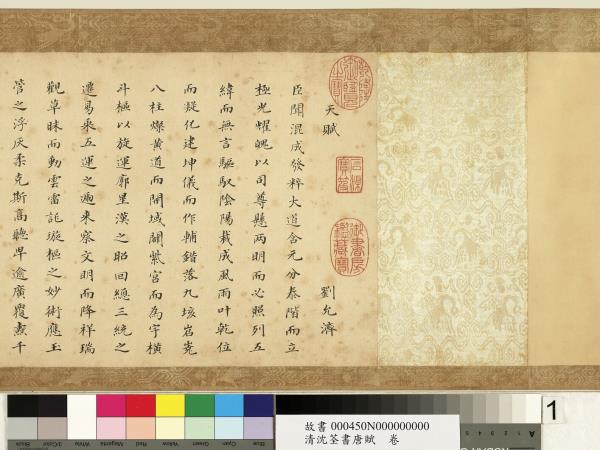 天賦
劉允濟
臣聞混成發粹大道含元分泰階而立
極光耀魄以司尊懸兩明而必照列五
緯而無言驅馭陰陽裁成風雨叶乾位
而凝化建坤儀而作輔錯落九垓岧嶤
八柱燦黃道而開域闢紫宮而為宇橫
斗樞以旋運廓星漢之昭回總三統之
遷易乘五運之遞來察文明而降祥瑞
觀草昧而動雲雷託璇樞之妙術應玉
管之浮灰柔克斯高聽卑逾廣覆燾千
乾隆御覽之寶
石渠寶笈
御書房鑑藏寶
故書 000450N000000000
清沈荃書唐賦 卷
1
Blue
Cyan
Green
Yellow
Red
Magenta
White
3/Color
Black
A